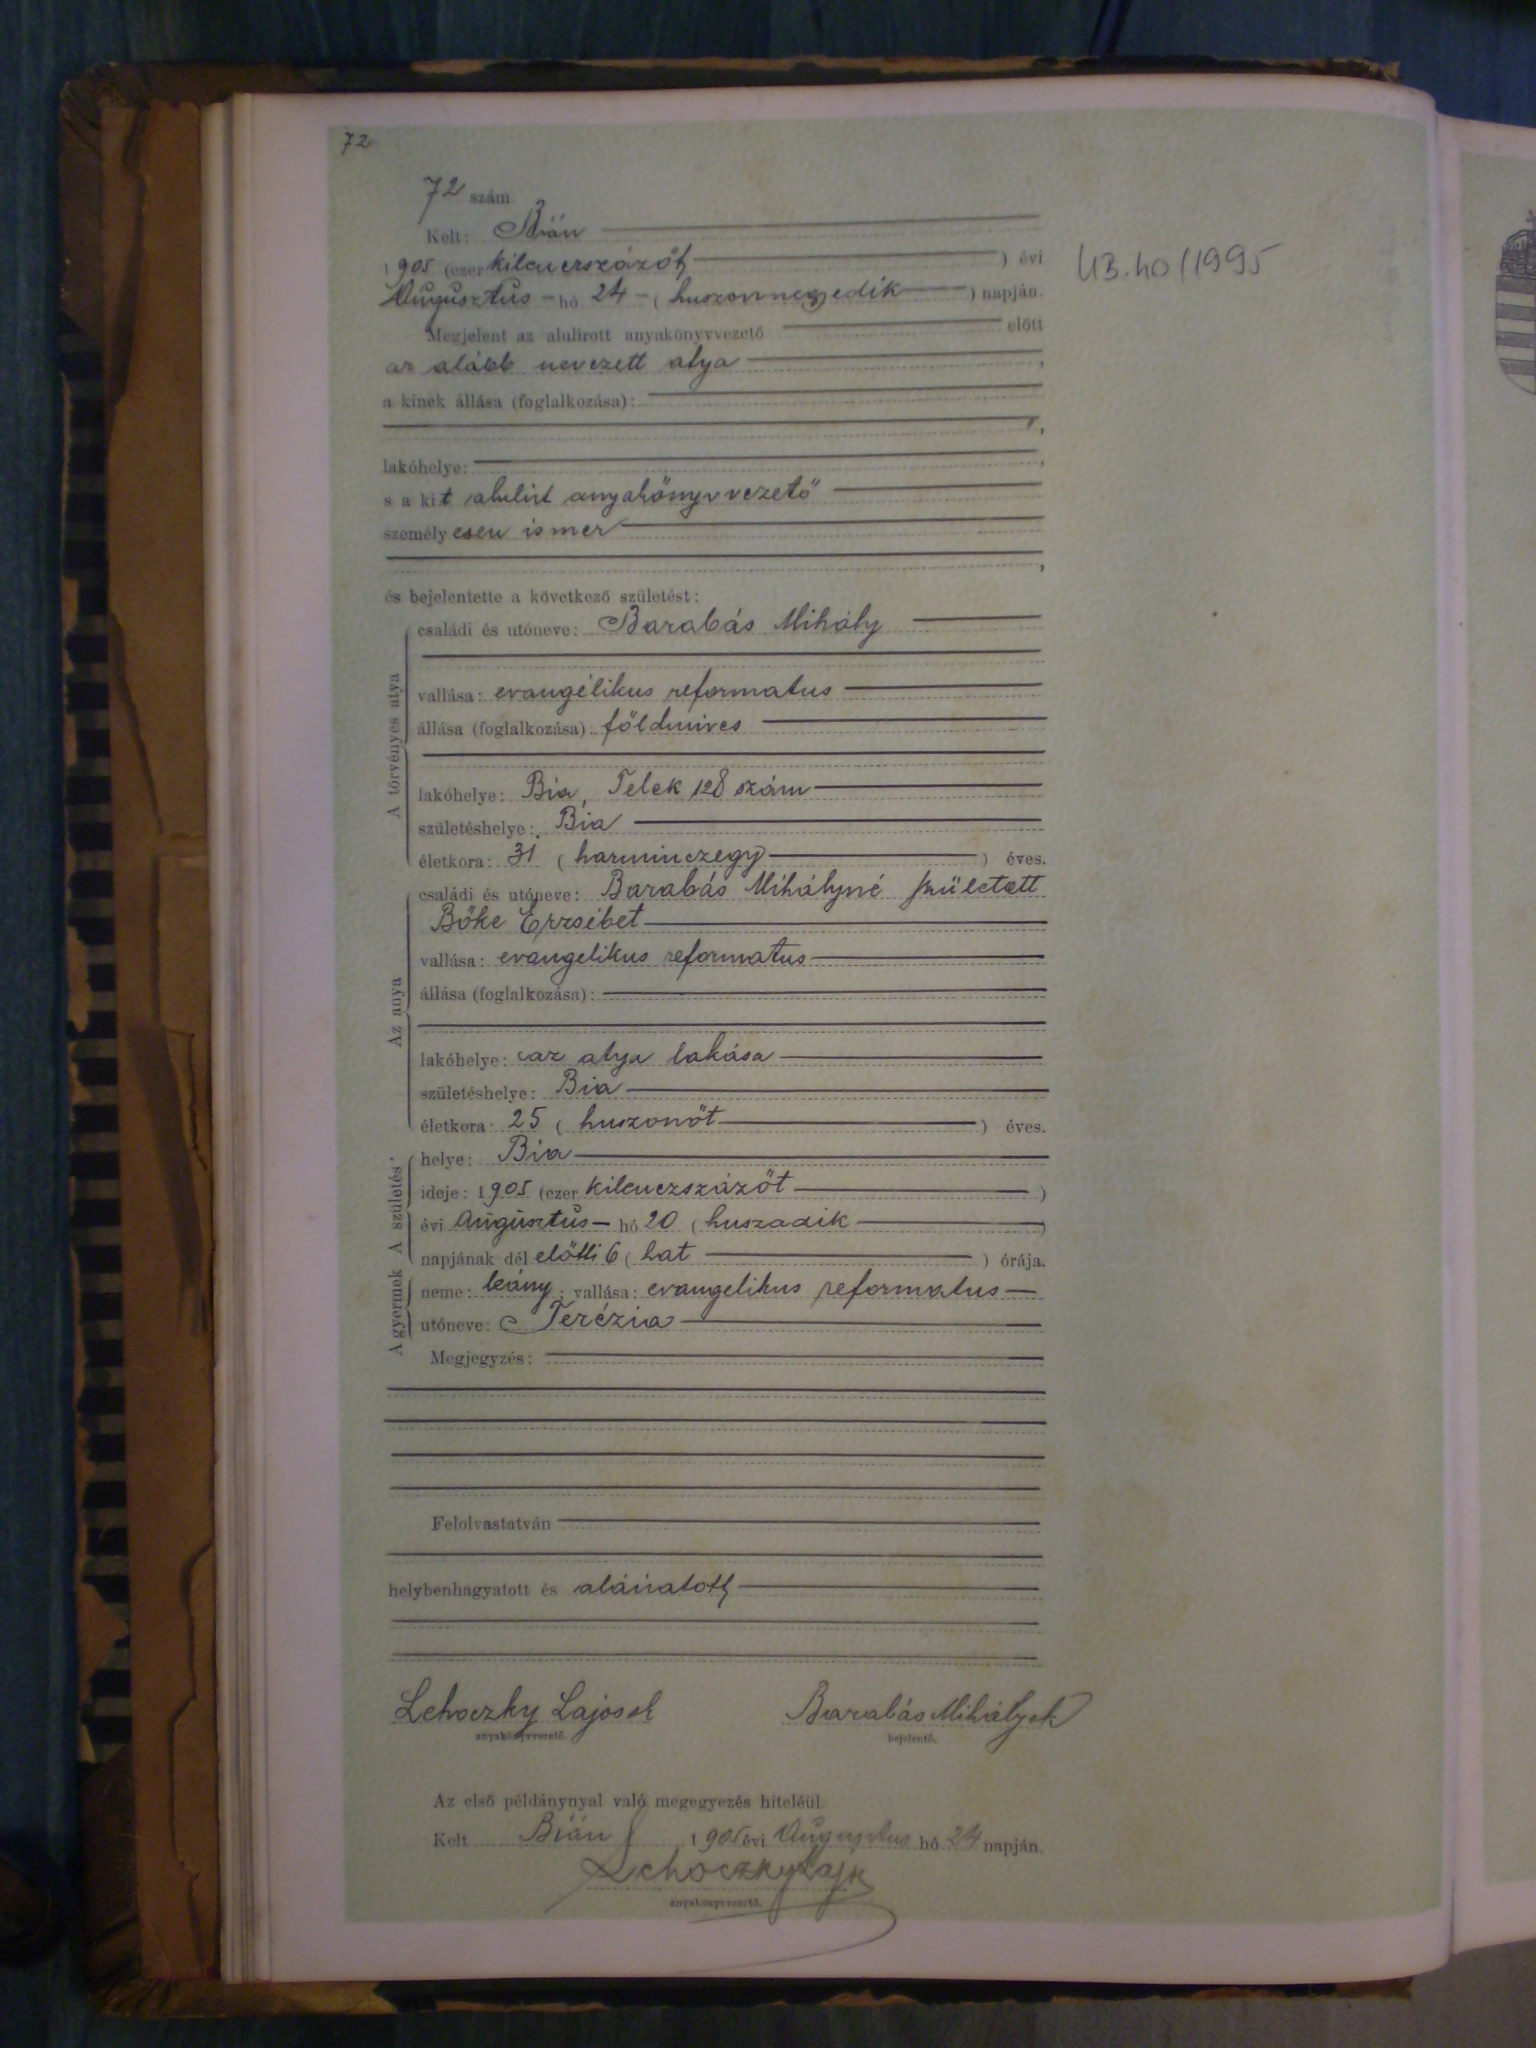 72
72 szám.
Kelt: Bián
1905 (ezerkilenczszázöt) évi
Augusztus hó 24 (huszonnegyedik) napján.
Megjelent az alulirott anyakönyvvezető előtt
az alább nevezett atya,
a kinek állása (foglalkozása):
lakóhelye:
s a kit alulirt anyakönyvvezető
személyesen ismer
és bejelentette a következő születést:
A törvényes atya
családi és utóneve: Barabás Mihály
vallása: evangélikus reformatus
állása (foglalkozása): földmives
lakóhelye: Bia, Telek 128 szám
születéshelye: Bia
életkora: 31 (harminczegy) éves.
Az anya
családi és utóneve: Barabás Mihályné született
Bőke Erzsébet
vallása: evangelikus reformatus
állása (foglalkozása):
lakóhelye: az atya lakása
születéshelye: Bia
életkora: 25 (huszonöt) éves.
A születés
helye: Bia
ideje: 1905 (ezer kilenczszázöt)
évi Augusztus hó 20 (huszadik)
napjának dél előtti 6 (hat) órája.
A gyermek
neme: leány; vallása: evangelikus reformatus
utóneve: Terézia
Megjegyzés:
Felolvastatván
helybenhagyatott és aláiratott
Lehoczky Lajos sk Barabás Mihály sk
anyakönyvvezető. bejelentő.
Az első példánynyal való megegyezés hiteléül.
Kelt Bián 1905 évi Augusztus hó 24 napján.
Lehoczky Lajos
anyakönyvvezető.